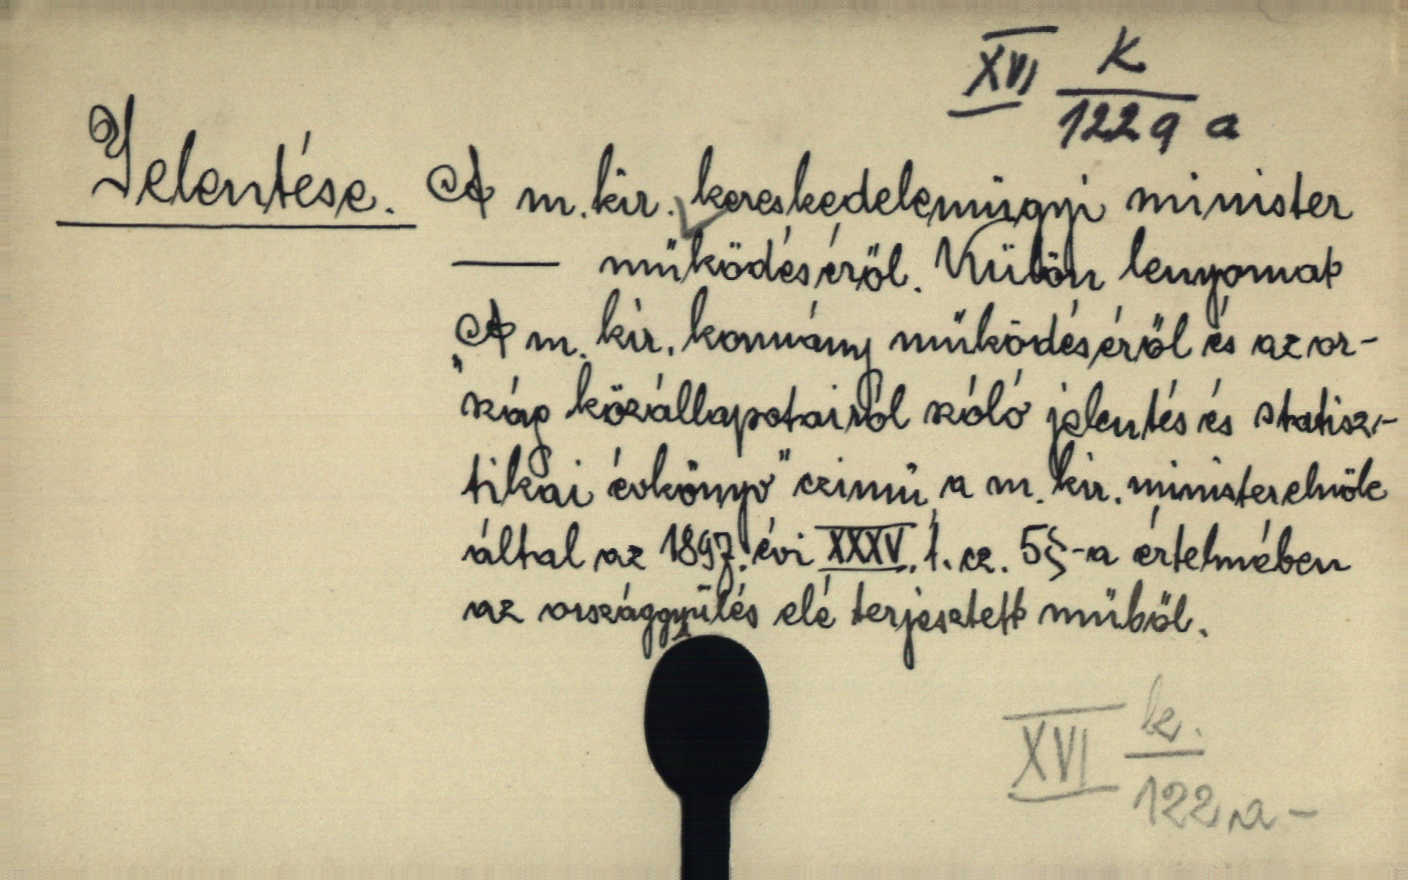 XVI K
122 9 a
Jelentése. A m. kir. kereskedelemügyi minister
—— működéséről. Külön lenyomat
„A m. kir. kormány működéséről és az or-
szág közállapotairól szóló jelentés és statisz-
tikai évkönyv" czimű, a m. kir. ministerelnök
által az 1897. évi XXXV. t. cz. 5§-a értelmében
az országgyülés elé terjesztett műből.
XVI k.
122 a –